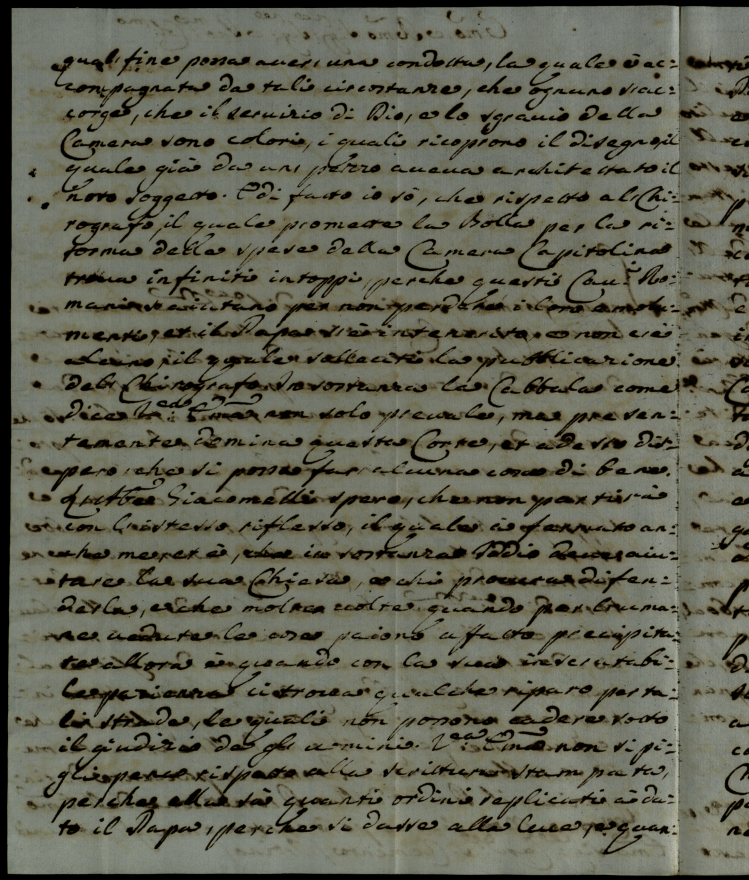 qual fine possa avere una condotta, la quale è ac-
compagnata da tali circostanze, che ognuno s'ac-
corge, che il servizio di Dio, e lo sgravio della
Camera sono colori, i quali ricoprono il disegno, il
quale già da un pezzo aveva architettato il
noto soggetto. E di fatto io sò, che rispetto al Chi-
rografo, il quale promette la Bolla per la ri-
forma delle spese della Camera Capitolina
trova infiniti intoppi, perche questi Cav.ri Ro-
mani s'aiutano per non perdere i loro emolu-
menti, et il Papa s'è intenerito, e non ci è
alcuno, il quale solleciti la pubblicazione
del Chirografo. In sostanza la Cabbala come
dice Emza non solo prevale, ma presen-
temente domina questa Corte, et adesso dis-
pero, che si possa far alcuna cosa di bene.
Giacomelli spero, che non partirà
con l'istesso riflesso, il quale à fermato an-
che me, et è, che in sostanza Iddio deve aiu-
tare la sua Chiesa, e chi procura difen-
derla, e che molte volte quando per l'uma-
ne vedute le cose paiono affatto precipita-
te allora è quando con la sua inscrutabi-
le ci trova qualche riparo per ta-
li strade, le quali non possono cadere sotto
il giudizio de gli uomini. V.ra Emza non si pi-
gli pena rispetto alla scrittura stampata,
perche ella sà quanti ordini replicati à da-
to il Papa, perche si dasse alla luce, e quan-